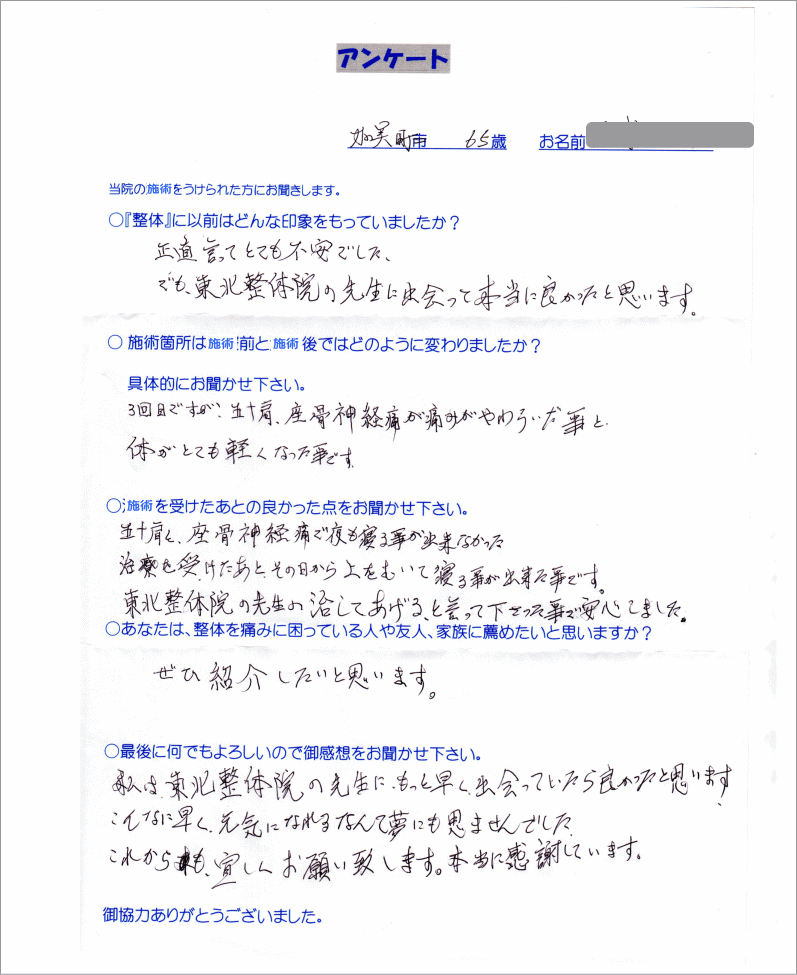 アンケート
加美町市 65歳 お名前
当院の施術をうけられた方にお聞きします。
○『整体』に以前はどんな印象をもっていましたか？
正直言ってとても不安でした、
でも、東北整体院の先生に出会って本当に良かったと思います。
○ 施術箇所は施術前と施術後ではどのように変わりましたか？
具体的にお聞かせ下さい。
3回目ですが、五十肩、座骨神経痛が痛みがやわらいだ事と
体がとても軽くなった事です
○施術を受けたあとの良かった点をお聞かせ下さい。
五十肩と、座骨神経痛で夜も寝る事が出来なかった
治療を受けたあと、その日から上をむいて寝る事が出来た事です。
東北整体院の先生の治してあげると言って下さった事で安心しました。
○あなたは、整体を痛みに困っている人や友人、家族に薦めたいと思いますか？
ぜひ紹介したいと思います。
○最後に何でもよろしいので御感想をお聞かせ下さい。
私は、東北整体院の先生に、もっと早く出会っていたら良かったと思います
こんなに早く、元気になれるなんて夢にも思ませんでした
これからも、宜しくお願い致します。本当に感謝しています。
御協力ありがとうございました。